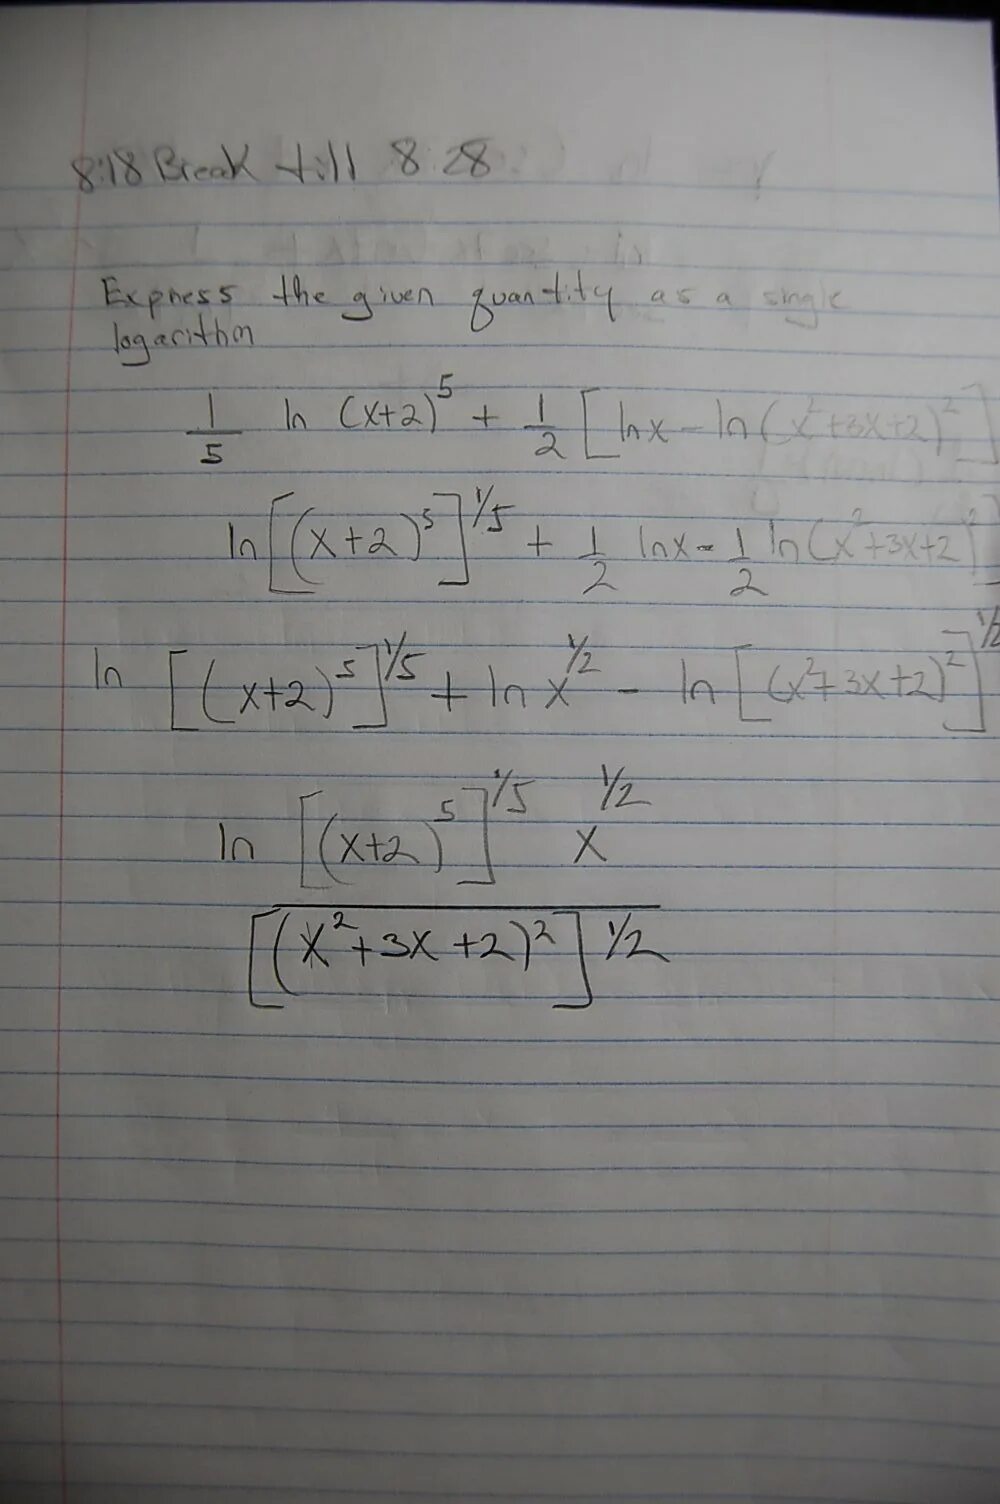 8:18 Break till 8:28
Express the given quantity as a single
logarithm
1/5 ln (x+2)^5 + 1/2 [ln x - ln (x^2+3x+2)^2]
ln [(x+2)^5]^1/5 + 1/2 ln x - 1/2 ln (x^2+3x+2)^2
ln [(x+2)^5]^1/5 + ln x^1/2 - ln [(x^2+3x+2)^2]^1/2
ln [(x+2)^5]^1/5 x^1/2
[(x^2+3x+2)^2]^1/2